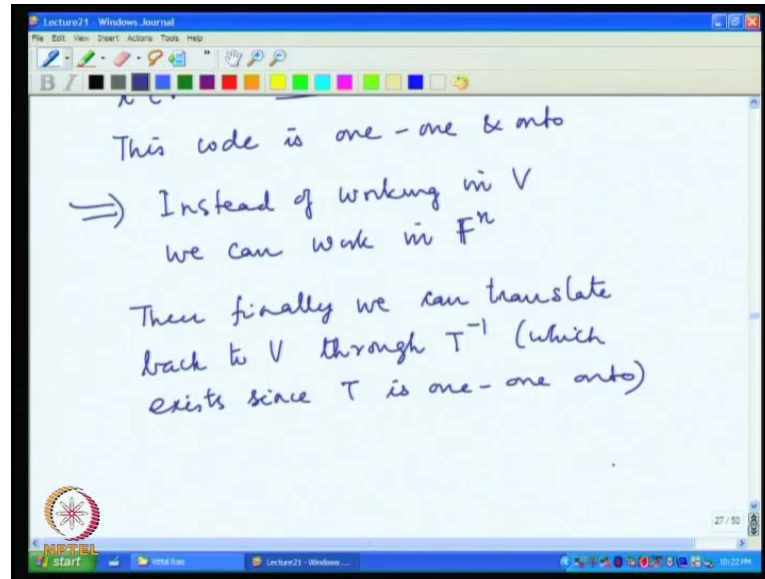 Lecture21 - Windows Journal
File Edit View Insert Actions Tools Help
B I
This code is one-one & onto
⇒ Instead of working in V
we can work in Fⁿ
Then finally we can translate
back to V through T⁻¹ (which
exists since T is one-one onto)
27 / 50
NPTEL
start Vittal Rao Lecture21 - Windows ... 10:22 PM